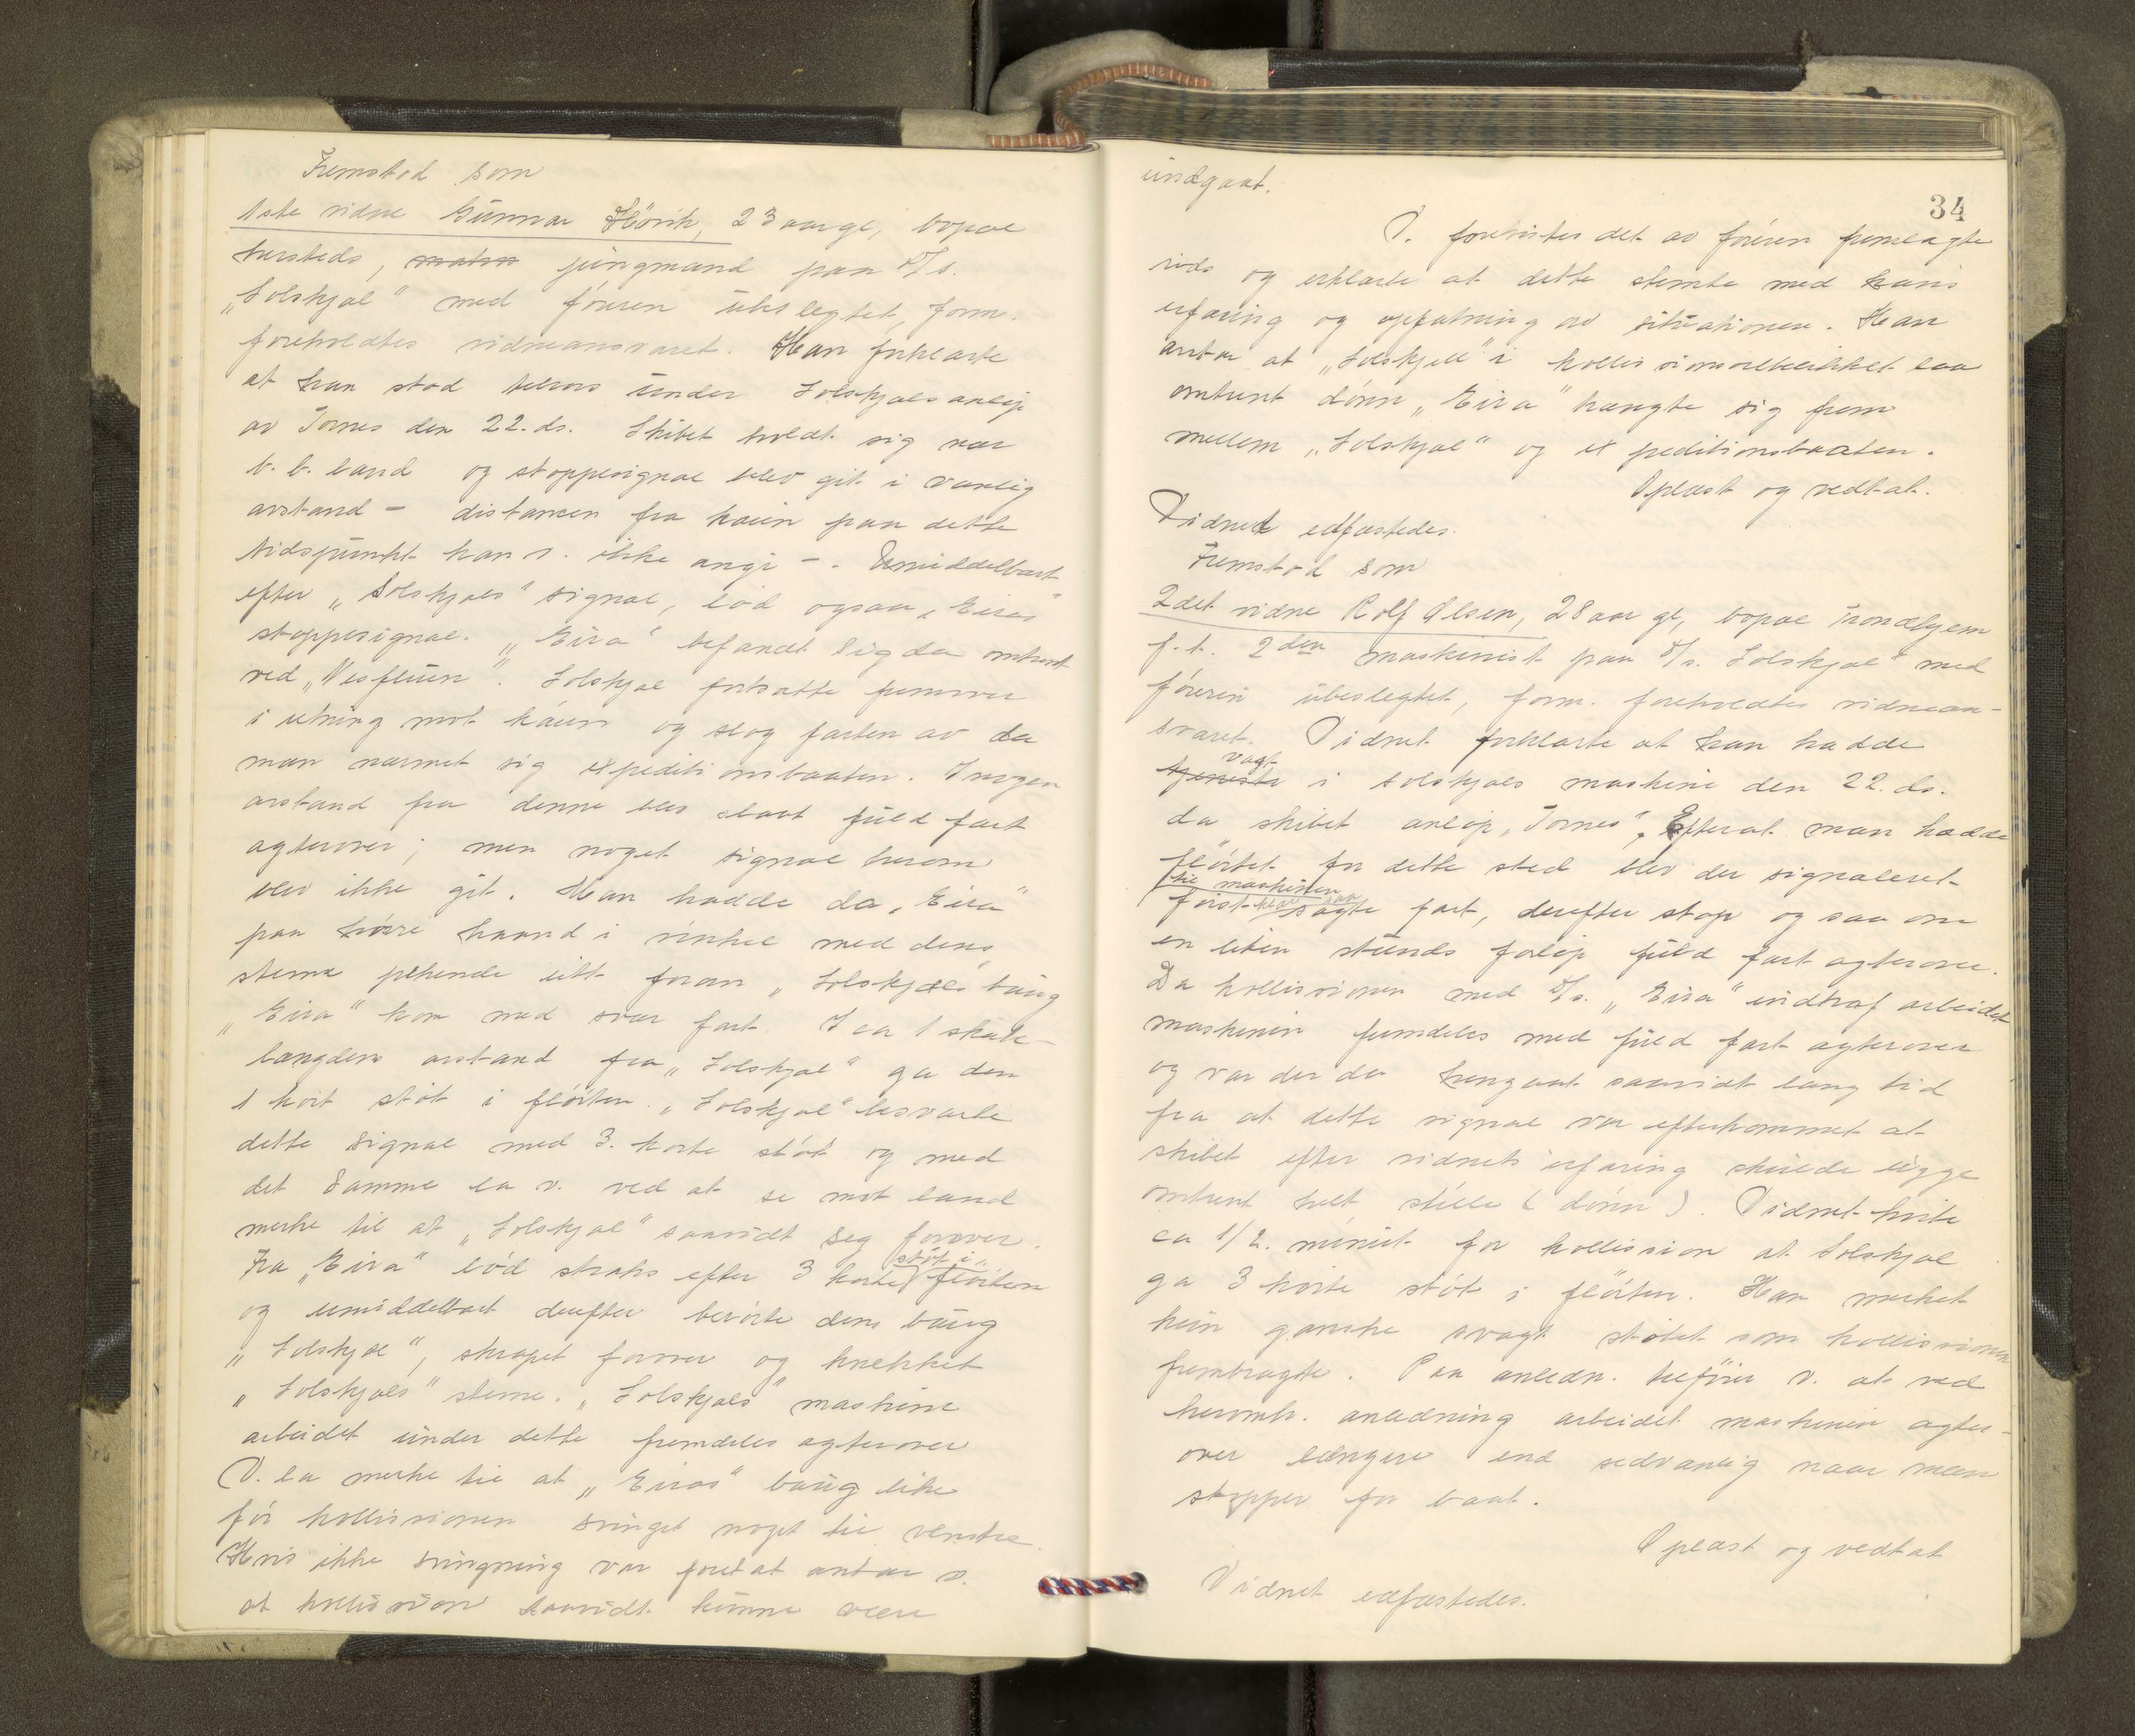 Fremstod som
1ste vidne Gunnar Hörik, 23 aar gl, bopæl
hersteds, matros jungmand paa D/s.
„Solskjæl" med föreren ubeslegtet, form.
foreholdtes vidneansvaret. Han forklarte
at han stod tilrors under Solskjæls anlöp
av Tornes den 22. ds. Skibet holdt sig nær
b.b. land og stoppesignal blev git i vanlig
avstand – distancen fra kaien paa dette
tidspunkt kan v. ikke angi –. Umiddelbart
efter „Solskjæls" signal, löd ogsaa „Eiras"
stoppesignal. „Eira" befandt sig da omtrent
ved „Vesfluen". Solskjæl fortsatte fremover
i retning mot kaien og slog farten av da
man nærmet sig expeditionsbaaten. I nogen
avstand fra denne blev slaat fuld fart
agterover; men noget signal herom
blev ikke git. Man hadde da „Eira"
paa höire haand i vinkel med dens
stevn pekende litt foran „Solskjæls" baug
„Eira" kom med svær fart. I ca 1 skibs-
længders avstand fra „Solskjæl" ga den
1 kort stöt i flöiten. „Solskjæl" besvarte
dette signal med 3. korte stöt og med
det samme la v. ved at se mot land
merke til at „Solskjæl" saavidt seg forover.
Fra „Eira" löd straks efter 3 korte stöt i flöiten
og umiddelbart derefter berörte dens baug
„Solskjæl", skrapet forover og knekket
„Solskjæls" stevne. „Solskjæls" maskine
arbeidet under dette fremdeles agterover
V. la merke til at „Eiras" baug like
för kollisionen svinget noget til venstre.
Hvis ikke svingning var foretat antar v.
at kollision saavidt kunne være
34
undgaat.
V. forevistes det av föreren fremlagte
rids og erklærte at dette stemte med hans
erfaring og opfatning av situationen. Han
antar at „Solskjæl" i kollisionsöieblikket laa
omtrent dönn „Eira" trængte sig frem
mellem „Solskjæl" og expeditionsbaaten.
Oplæst og vedtat.
Vidnet edfæstedes.
Fremstod som
2det vidne Rolf Olsen, 28 aar gl, bopæl Trondhjem
f.t. 2den maskinist paa D/s. Solskjæl" med
föreren ubeslegtet, form. foreholdtes vidnean-
svaret. Vidnet forklarte at han hadde
tjeneste vagt i Solskjæls maskine den 22. ds.
da skibet anlöp „Tornes". Efterat man hadde
flöitet for dette sted blev der signaleret
til maskinen
först klar saa sagte fart, derefter stop og saa om
en liten stunds forlöp fuld fart agterover.
Da kollisionen med D/s. „Eira" indtraf arbeidet
maskinen fremdeles med fuld fart agterover
og var der da hengaat saavidt lang tid
fra at dette signal var efterkommet at
skibet efter vidnets erfaring skulde ligge
omtrent helt stille (dönn). Vidnet hörte
ca 1/2. minut for kollission at Solskjæl
ga 3 korte stöt i flöiten. Han merket
kun ganske svagt stötet som kollisionen
frembragte. Paa anledn. tilföier v. at ved
heromh. anledning arbeidet maskinen agter-
over længere end sedvanlig naar man
stopper for baat.
Oplæst og vedtat
Vidnet edfæstedes.